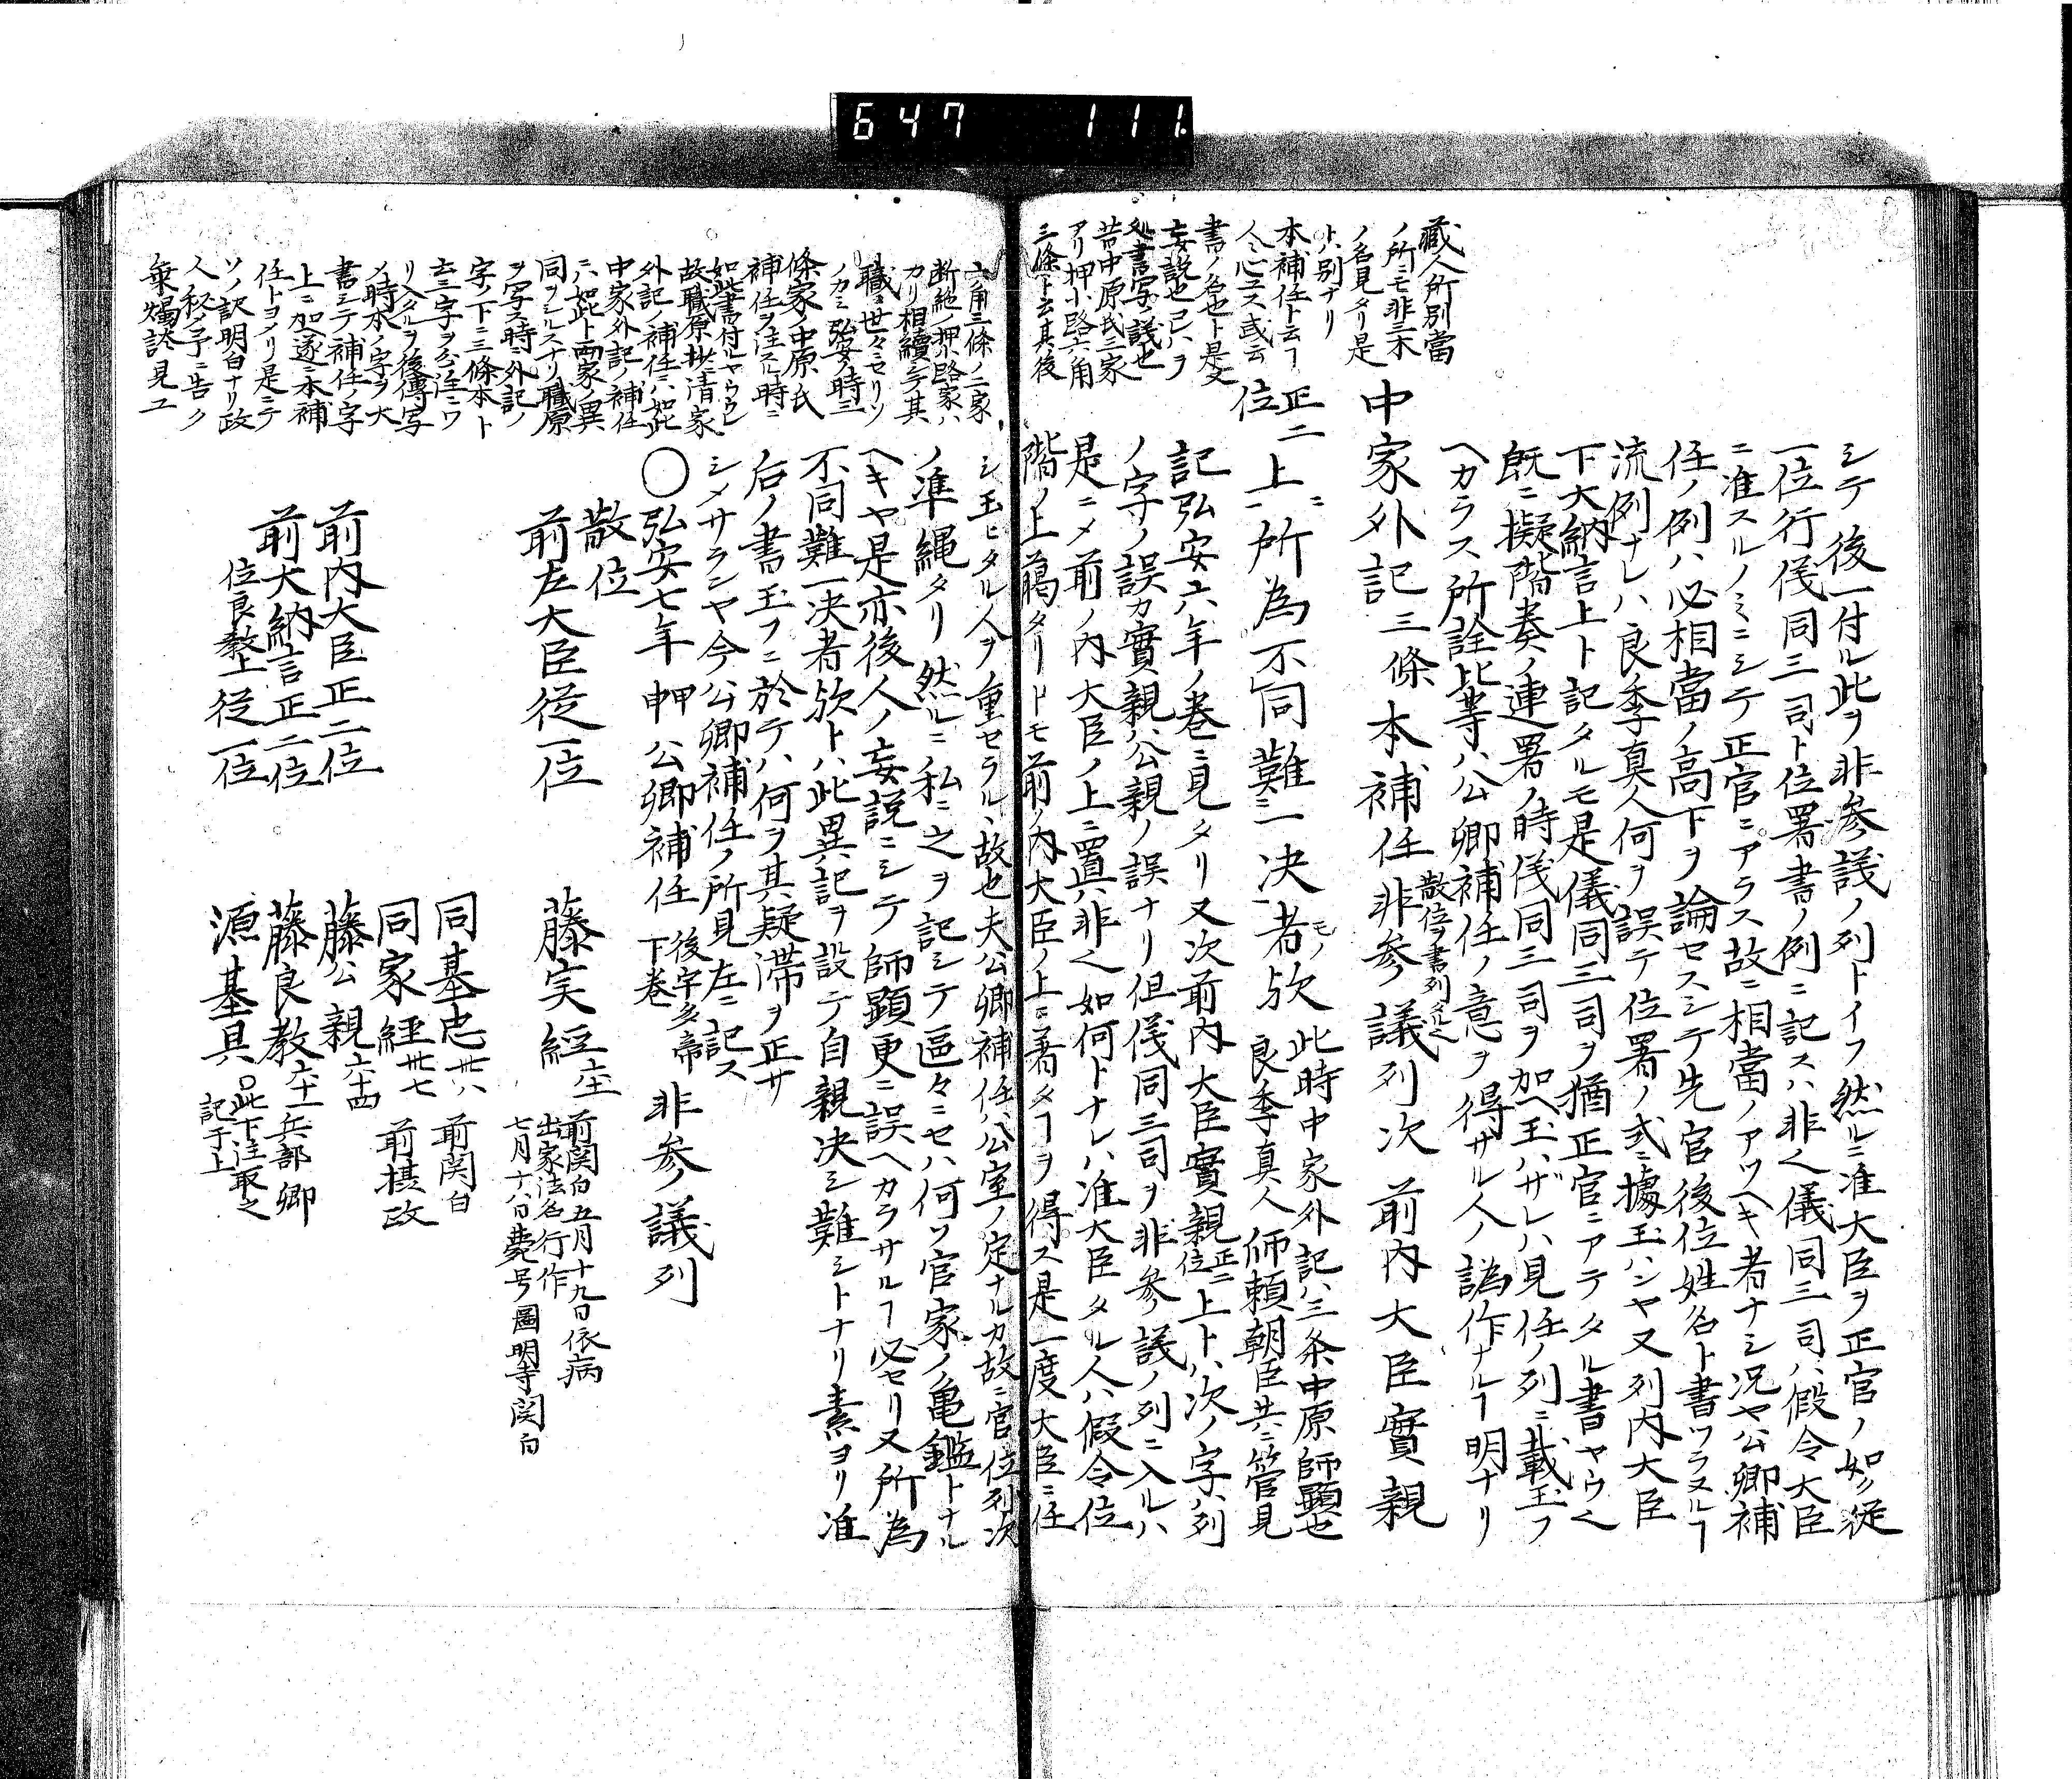 647 111
シテ後一付ル此ヲ非参議ノ列トイフ然ルニ准大臣ヲ正官ノ如ク従
一位行儀同三司ト位署書ノ例ニ記スハ非也儀同三司ハ假令大臣
ニ准スルノミニシテ正官ニアラス故ニ相當ノアツヘキ者ナシ況ヤ公卿補
任ノ例ハ必相當ノ高下ヲ論セスシテ先官後位姓名ト書ツラヌルヿ
流例ナレハ良季真人何ヲ誤テ位署ノ式ニ據玉ハンヤ又列内大臣
下大納言上ト記タルモ是儀同三司ヲ猶正官ニアテタル書ヤウ也
既ニ擬階奏ノ連署ノ時儀同三司ヲ加ヘ玉ハザレハ見任ノ列ニ載玉フ
ヘカラス所詮此等ハ公卿補任ノ意ヲ得ザル人ノ偽作ナルヿ明ナリ
蔵人所別當
ノ所ニモ非三木
ノ名見タリ是
トハ別ナリ
中家外記三條本補任非参議列次前内大臣實親
散位ノ書列タルヘ
本補任ト云ヿ
人々心エス或云
書ノ名也ト是文
妄説也己ハヲ
処書写ノ議也
昔中原氏三家
アリ押小路六角
三條ト云其後
正二
位
上ニ所為不同難ニ一决者欤
モノ
此時中家外記ハ三条中原師顕也
良季真人師頼朝臣共ニ管見
記弘安六年ノ巻ニ見タリ又次前内大臣實親正二位上トハ次ノ字ハ列
ノ字ノ誤カ實親ハ公親ノ誤ナリ但儀同三司ヲ非参議ノ列ニ入ルハ
是ニメ前ノ内大臣ノ上ニ置ハ非也如何トナレハ准大臣タル人ハ假令位
階ノ上﨟タリトモ前ノ内大臣ノ上ニ著タヿヲ得ス是一度大臣ニ任
シ玉ヒタル人ヲ重セラルヽ故也夫公卿補任ハ公室ノ定ナルカ故ニ官位列次
ノ準縄タリ然ルニ私ニ之ヲ記シテ區々ニセハ何ソ官家ノ亀鑑トナル
ヘキヤ是亦後人ノ妄説ニシテ師顕更ニ誤ヘカラサルヿ必セリ又所為
不同難一决者欤トハ此異記ヲ設テ自親决シ難シトナリ素ヨリ准
后ノ書玉フニ於テハ何ヲ其疑滞ヲ正サ
シメサランヤ今公卿補任ノ所見左ニ記ス
六角三條ノ二家
断絶ノ押小路家ハ
カリ相續シテ其
職ヲ世々ニセリソ
ノカミ弘安ノ時三
條家ノ中原氏
補任ヲ注スル時ニ
如此書付ルヤウウシ
故職原抄ニ清家
外記ノ補任ニハ如此
中家外記ノ補任
ニハ如此ト両家ノ異
同ヲシルスナリ職原
ヲ写ス時ニ外記ノ
字ノ下ニ三條本ト
云三字ヲ分注ニワ
リ入タルヲ後傳写
ノ時本ノ字ヲ大
書シテ補任ノ字
上ニ加逐ニ本補
任トヨメリ是ニテ
ソノ訳明白ナリ政
人秘メ予ニ告ク
秉燭談見ユ
〇弘安七年甲申公卿補任 後宇多帝下巻 非参議列
散位
前左大臣従一位 藤実經 六十二 前関白五月十九日依病
出家法名行作
七月十八日薨号圓明寺関白
同基忠 卅八 前関白
同家經 卅七 前摂政
前内大臣正二位 藤公親 六十四
前大納言正二位 藤良教 六十一 兵部卿
位良教上従一位 源基具 〇此下注取之
記于上